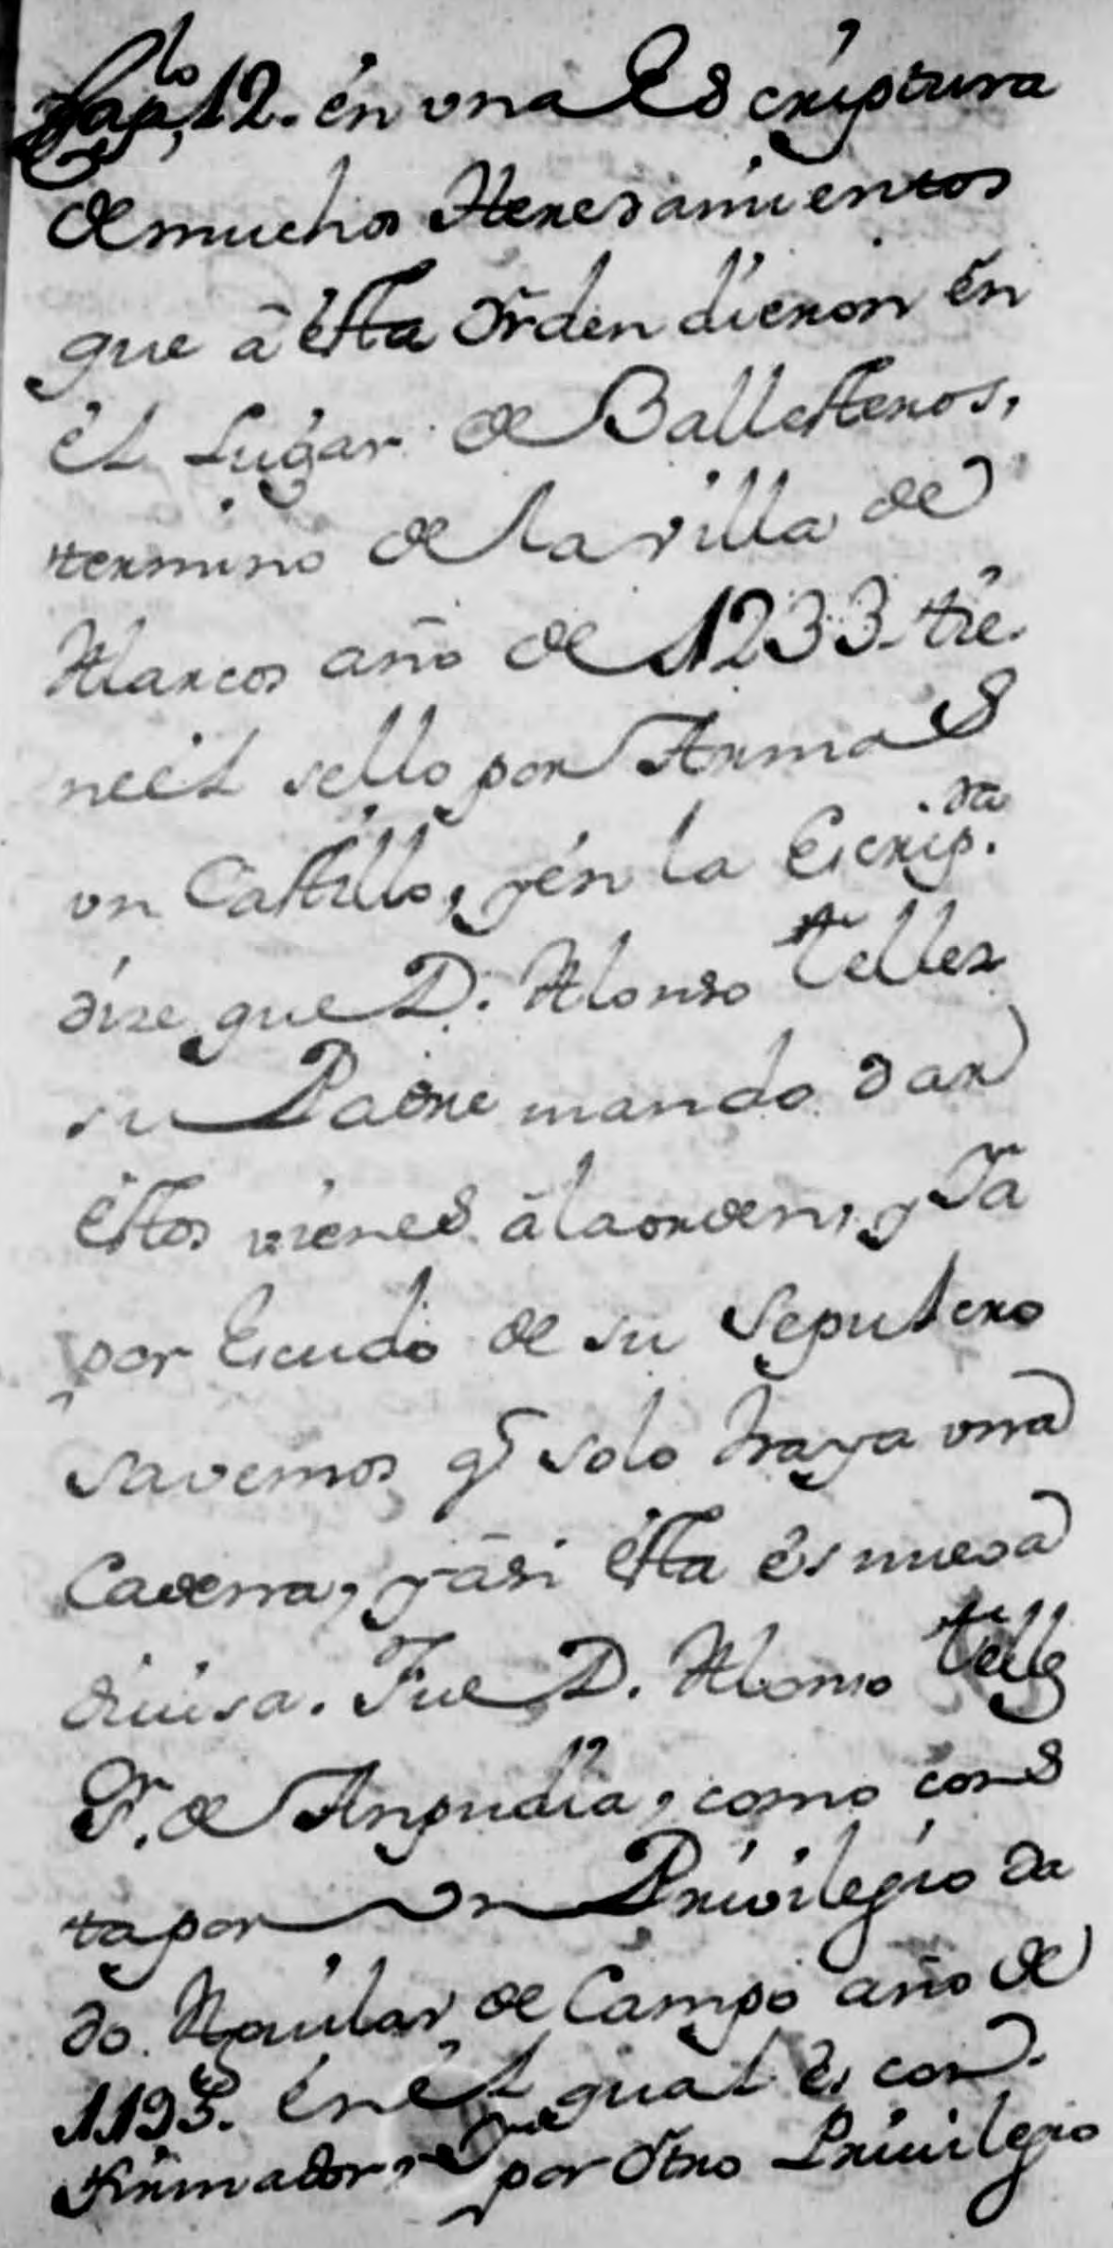 Cap.lo 12. en una Escriptura
de muchos Heredamientos
que â êsta Orden dieron en
êl Lugar de Ballesteros,
termino de la villa de
Alarcos año de 1233. tie
ne êl sello por Armas
un Castillo, y én la Escrip.ra
dize que D. Alonso Tellez
su Padre mando dar
êstos vienes â la orden, y Ya
por Escudo de su Sepulcro
savemos q̃ solo traya una
Cadena, y âsi êsta ês nueva
divisa. Fue D. Alonso Tellz
S.r de Anpudia, como cons
ta por un Privilegio da
do. Aguilar de Campo año de
1195. én êl qual ês con.
firmador, y por Otro Privilegio